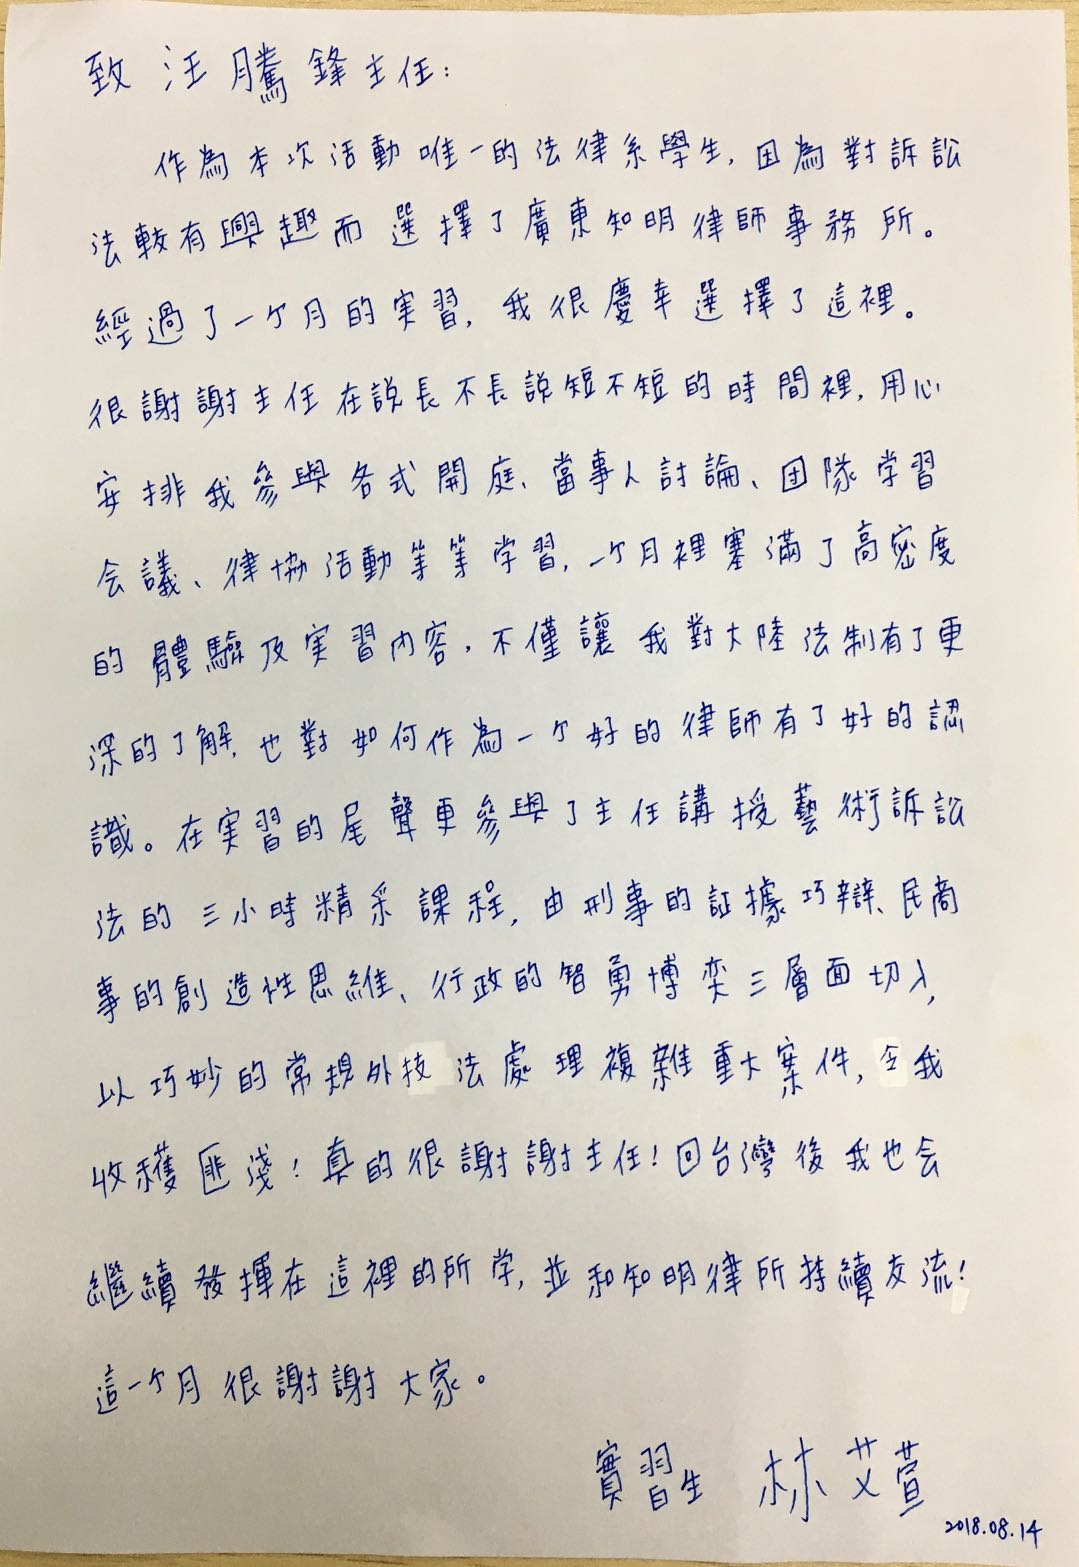 致汪騰鋒主任：
作為本次活動唯一的法律系學生，因為對訴訟
法較有興趣而選擇了廣東知明律師事務所。
經過了一个月的実習，我很慶幸選擇了這裡。
很謝謝主任在説長不長説短不短的時間裡，用心
安排我參與各式開庭、當事人討論、团隊学習
会議、律協活動等等学習，一个月裡塞滿了高密度
的體驗及実習內容，不僅讓我對大陸法制有了更
深的了解，也對如何作為一个好的律師有了好的認
識。在実習的尾聲更參與了主任講授藝術訴訟
法的三小時精采課程，由刑事的証據巧辯、民商
事的創造性思維、行政的智勇博奕三層面切入，
以巧妙的常規外技法處理複雜重大案件，令我
收穫匪淺！真的很謝謝主任！回台灣後我也会
繼續發揮在這裡的所学，並和知明律所持續友流！
這一个月很謝謝大家。
實習生 林艾萱
2018.08.14